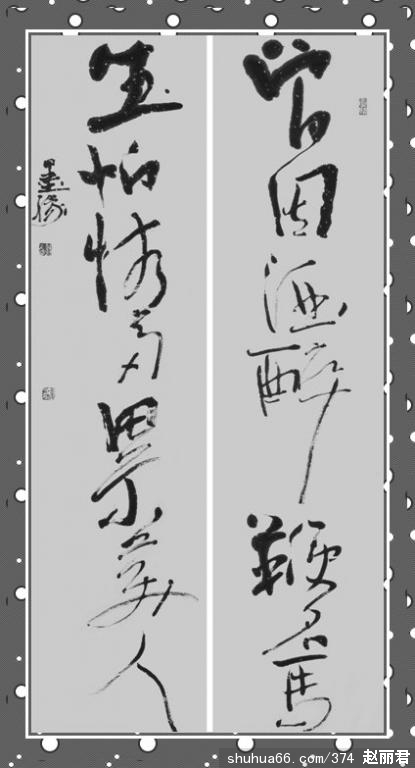 曾因酒醉鞭名馬
生怕情多累美人
墨
shuhua66.com/374 赵丽君